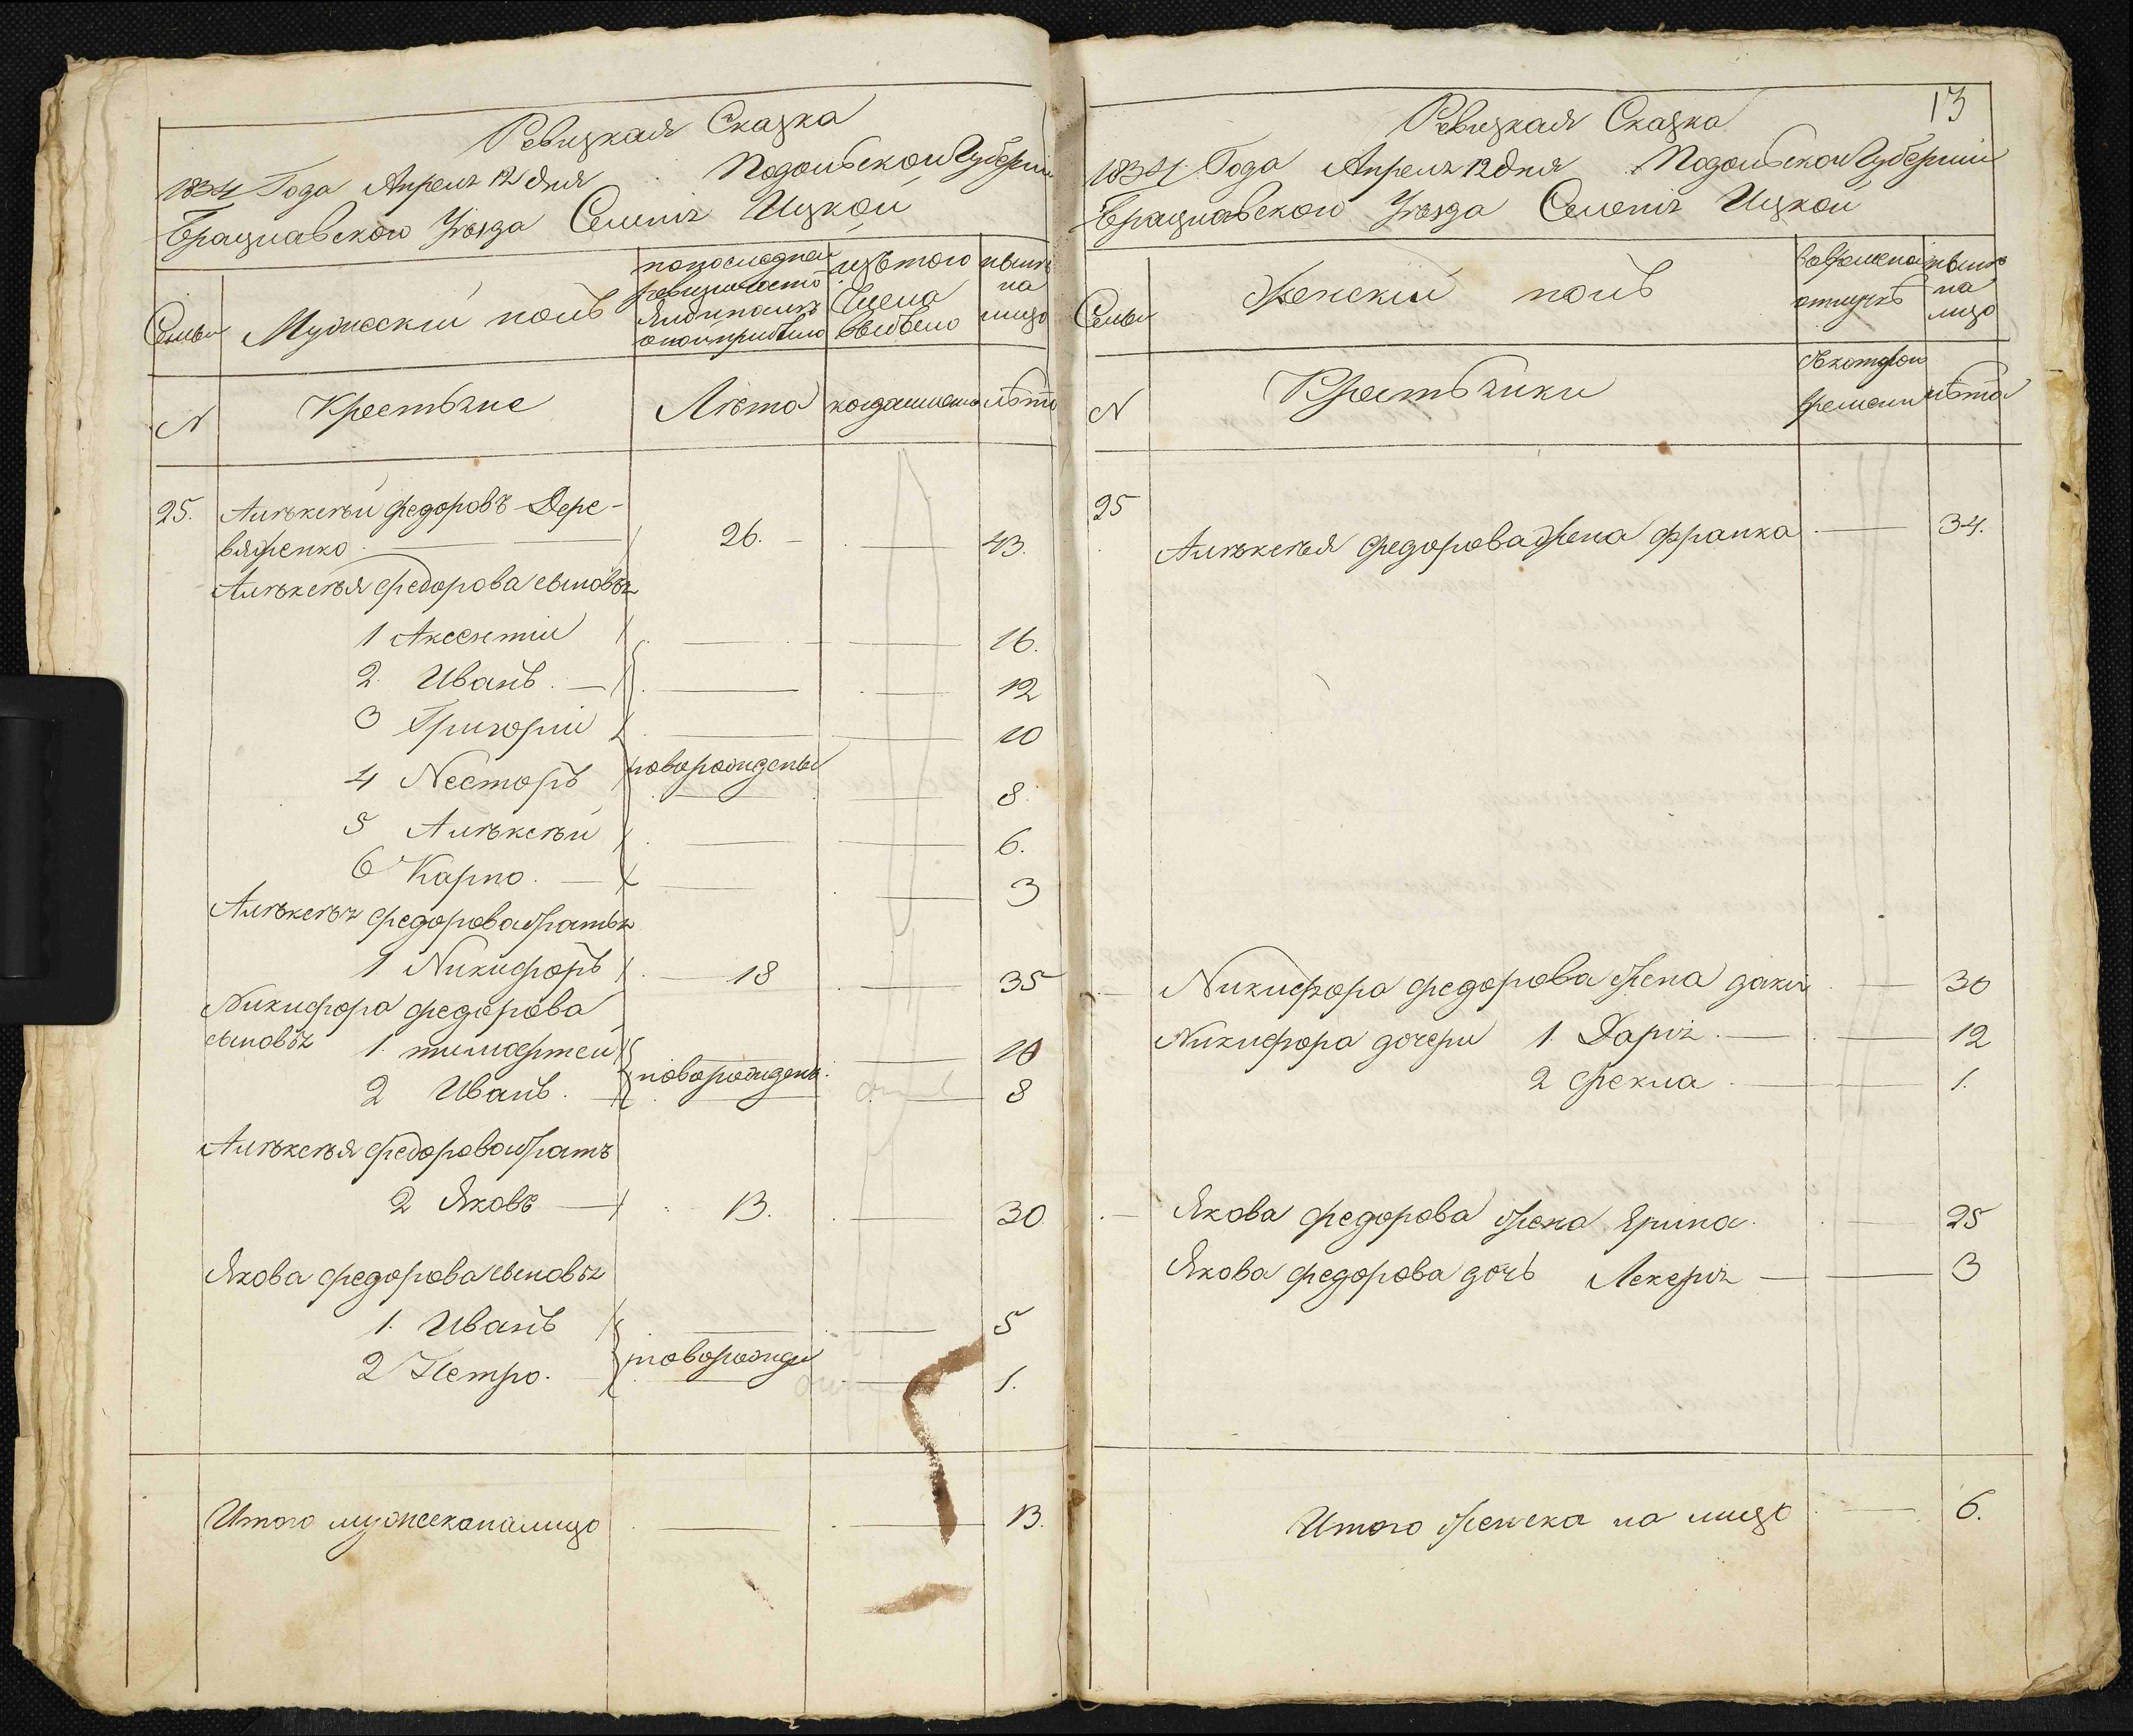 Ревизкая Сказка
1834 Года Апреля 12 дня Подольской Губернии
Брацлавского Уѣзда Селенія Ицкой
Семьи
Мужескій полъ
попоследней ревизии состояло и послѣ оной прибыло
изъ того числа выбыло
нынѣ на лицо
N
Крестьяне
Лѣта
когда именно
лѣта
25. Алѣксѣй Федоровъ Дере-
вяженко 26. 43.
Алѣксѣя Федорова сыновья
1 Аксентій 16.
2. Иванъ 12
3 Григорій 10
новорожденые
4 Несторъ 8.
5 Алѣксѣй 6.
6 Карпо. 3
Алѣксѣя Федорова братья
1 Никифоръ 18 35
Никифора Федорова
сыновья 1. тимофтей 10
новорожден.
2 Иванъ. 8
Алѣксѣя Федорова братъ
2 Яковъ 13. 30
Якова Федорова сыновья
1. Иванъ 5
новорожде
2 Петро. 1.
Итого мужеска на лицо 13.
13
Ревизкая Сказка
1834 Года Апреля 12 дня Подольской Губерніи
Брацлавского Уѣзда Селенія Ицкой
Семьи
Женскій полъ
во временной отлучкѣ
нынѣ на лицо
N
Крестьянки
съ которого времени
лѣта
25
Алѣксѣя Федорова жена Франка 34.
Никифора Федорова жена дакія 30
Никифора дочери 1 Дарія 12
2 Фекла 1.
Якова Федорова жена Ярина. 25
Якова Федорова дочь Лекерія 3
Итого женска на лицо 6.